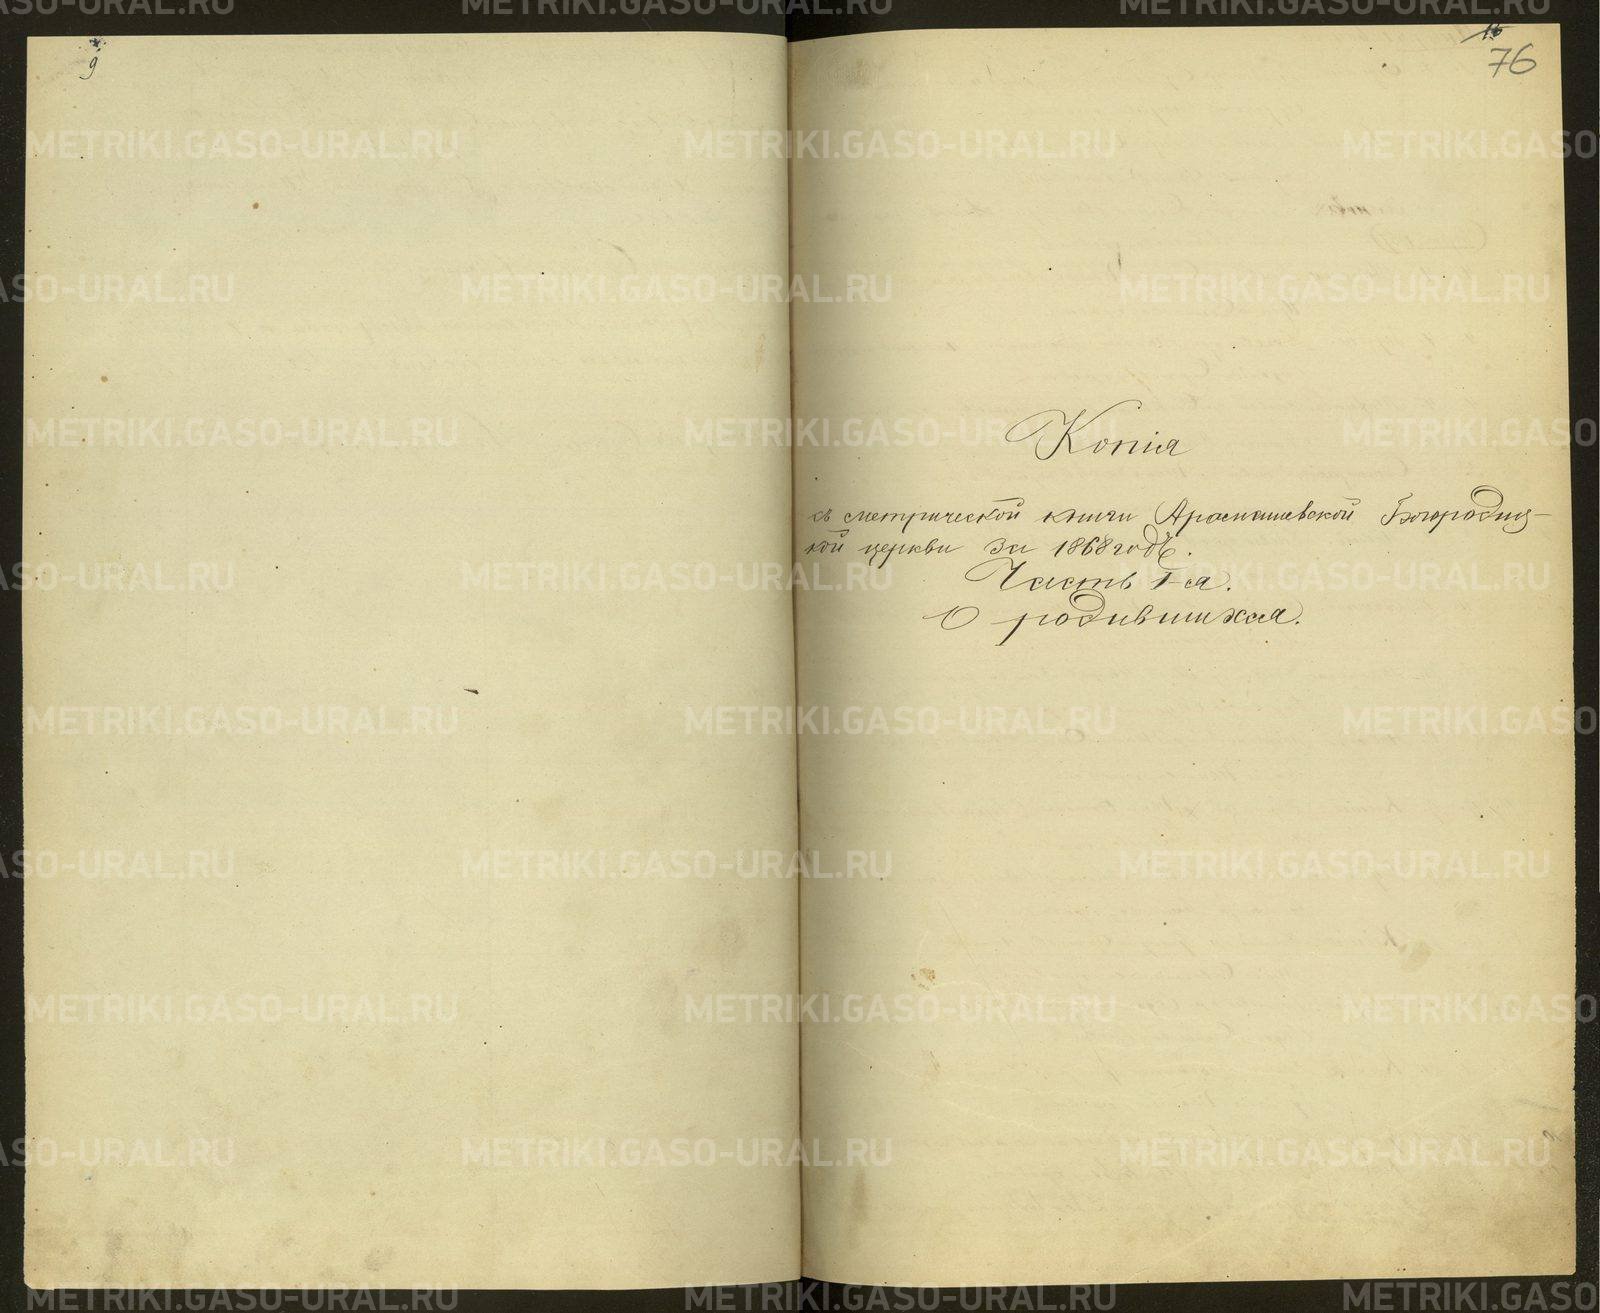 9
76
Копія
съ метрической книги Арамашевской Богородиц-
кой церкви за 1868 годъ.
Часть I-я.
О родившихся.
METRIKI.GASO-URAL.RU